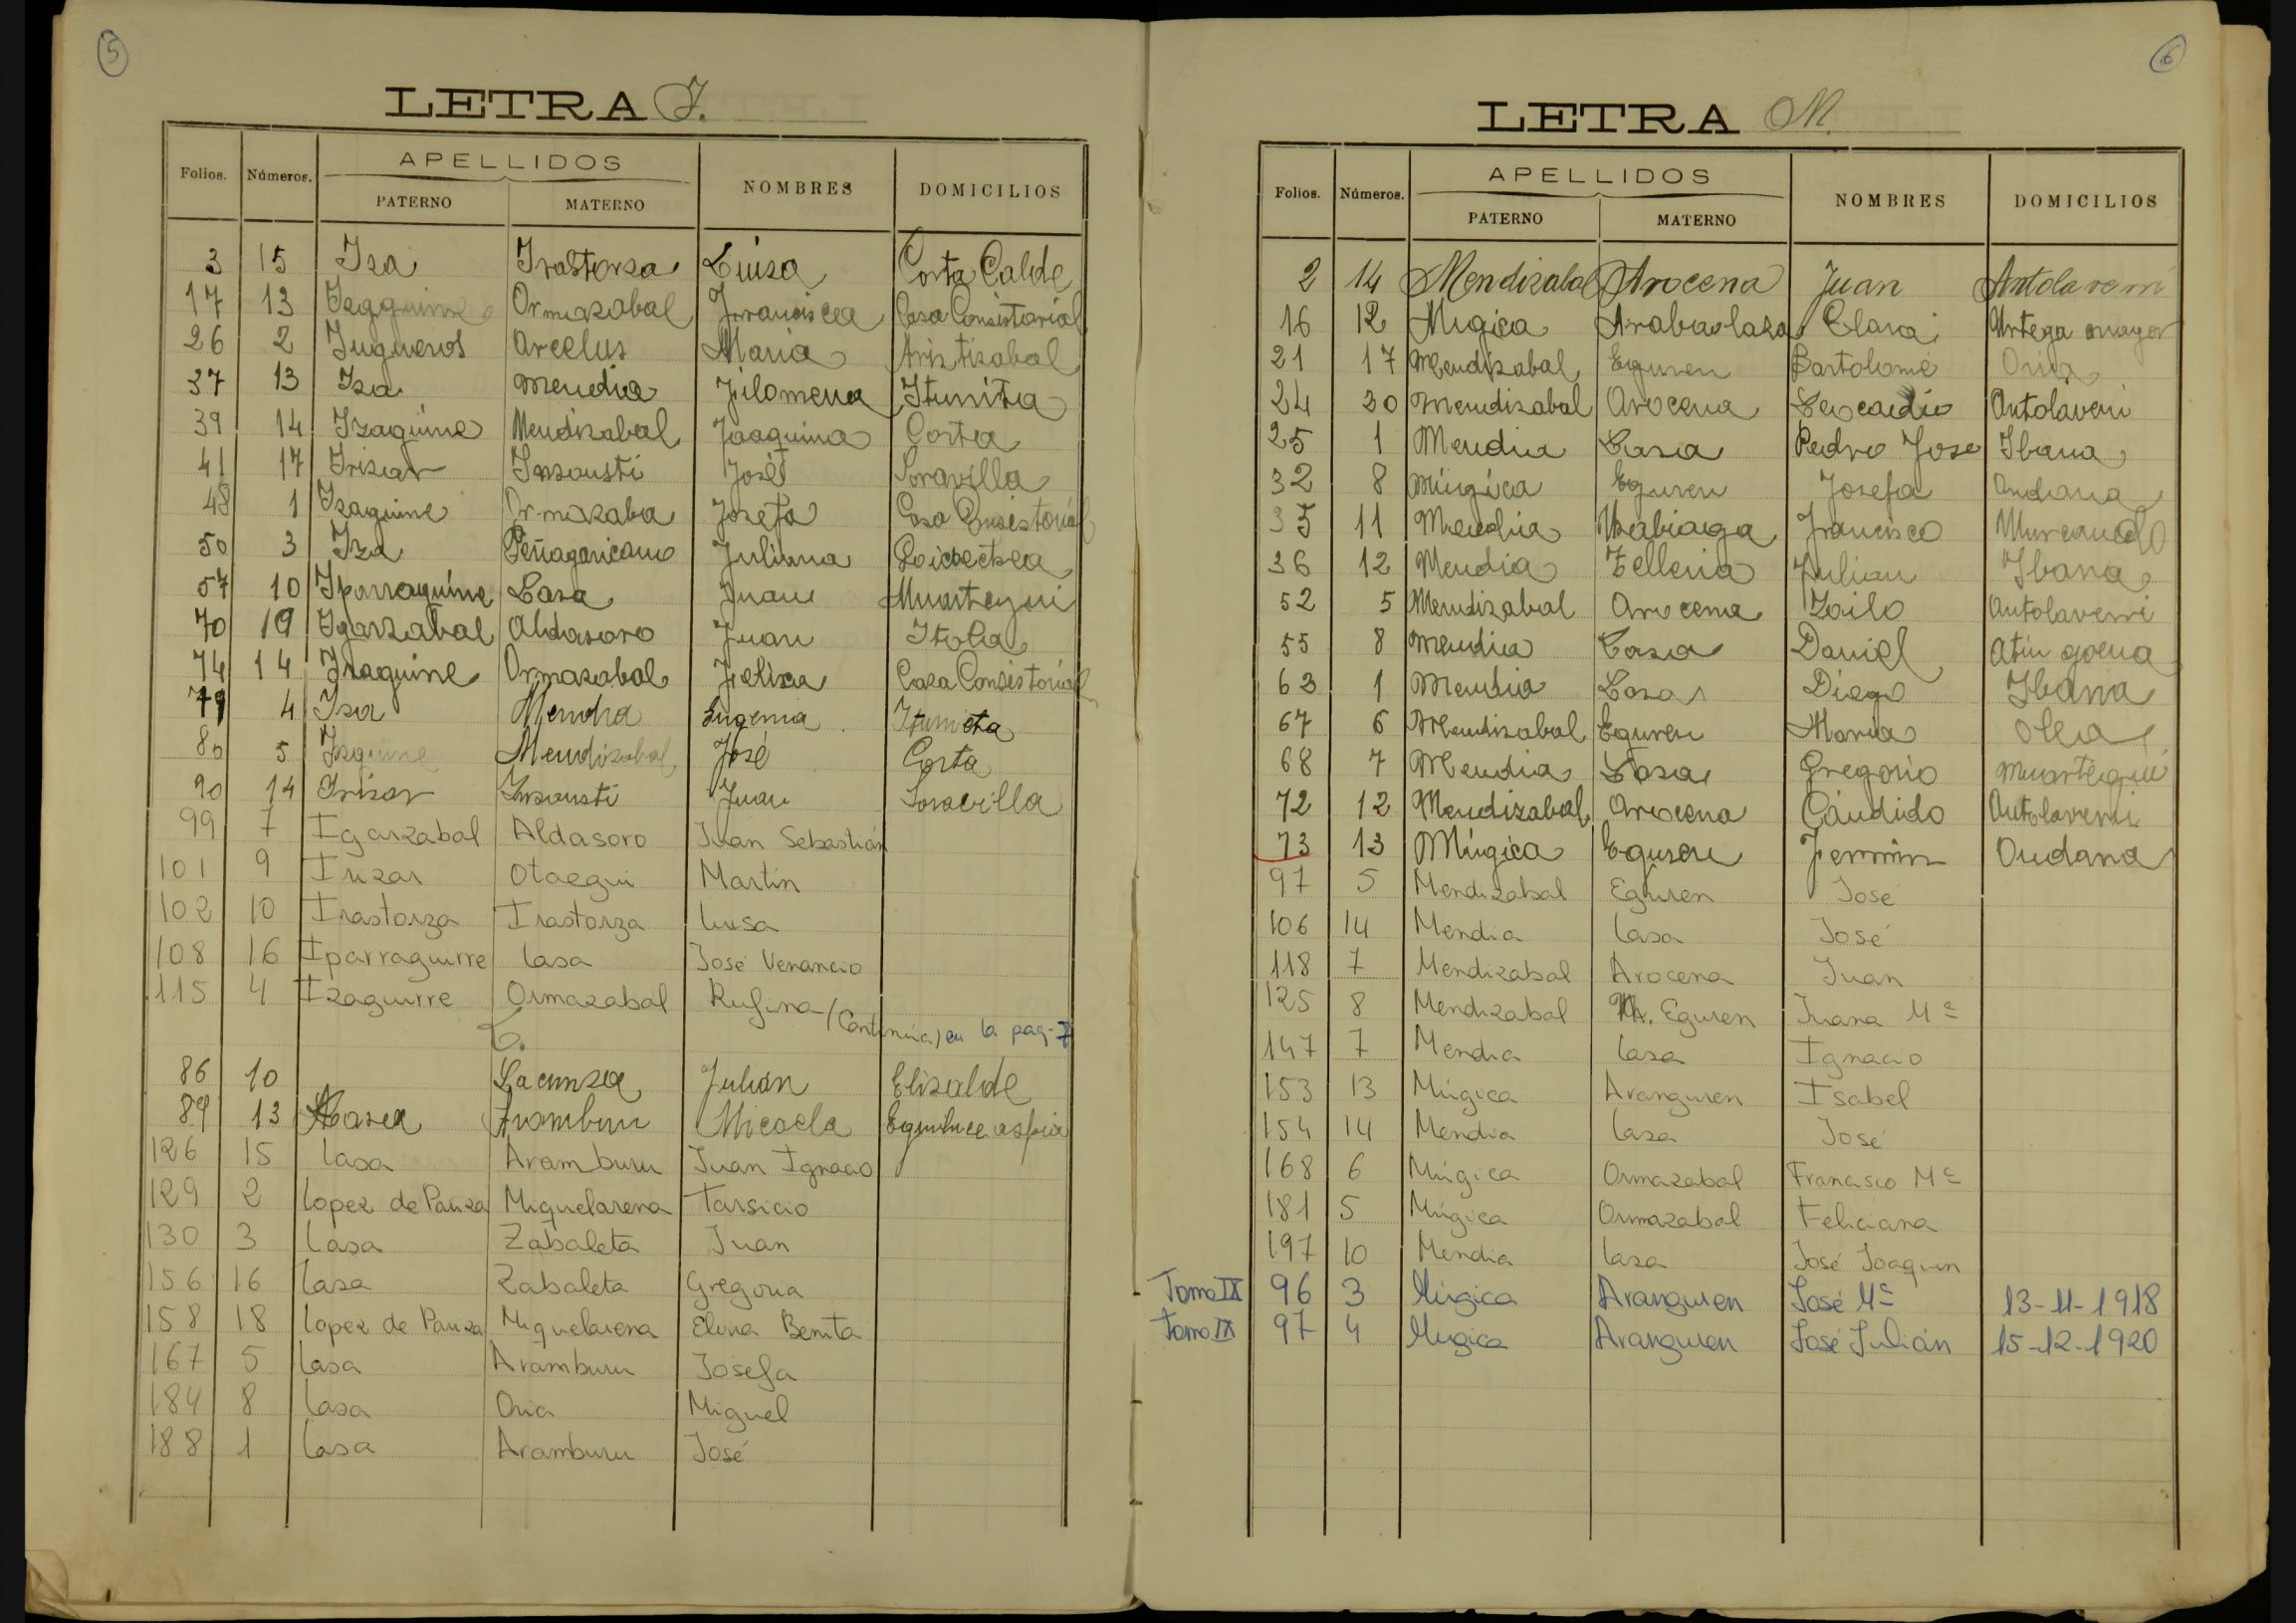 5
LETRA I.
Folios. Números. APELLIDOS NOMBRES DOMICILIOS
PATERNO MATERNO
3 15 Iza Irastorza Luisa Corta Calde
17 13 Izaguirre Ormazabal Francisca Casa Consistorial
26 2 Arcelus Maria Aristizabal
37 13 Iza Mendia Filomena Iturrita
39 14 Izaguirre Mendizabal Joaquina Corta
41 17 Irizar Insausti José Soravilla
48 1 Izaguirre Ormazaba Josefa Casa Consistorial
50 3 Iza Peñagaricano Juliana Goicoechea
57 10 Iparraguirre Lasa Juan Muartegui
70 19 Igarzabal Aldasoro Juan Itola
74 14 Izaguirre Ormazabal Felisa Casa Consistorial
79 4 Iza Mendia Eugenia Iturrieta
80 5 Izaguirre Mendizabal José Corta
90 14 Irizar Insausti Juan Soravilla
99 7 Igarzabal Aldasoro Juan Sebastián
101 9 Irizar Otaegui Martín
102 10 Irastorza Irastorza Luisa
108 16 Iparraguirre Lasa José Venancio
115 4 Izaguirre Ormazabal Rufina (Continúa) en la pag-7
L.
86 10 Lacunza Julián Elizalde
89 13 Lasa Aramburu Micaela
126 15 Lasa Aramburu Juan Ignacio
129 2 Lopez de Pariza Miquelarena Tarsicio
130 3 Lasa Zabaleta Juan
156 16 Lasa Zabaleta Gregoria
158 18 Lopez de Pariza Miquelarena Elvira Benita
167 5 Lasa Aramburu Josefa
184 8 Lasa Oria Miguel
188 1 Lasa Aramburu José
6
LETRA M.
Folios. Números. APELLIDOS NOMBRES DOMICILIOS
PATERNO MATERNO
2 14 Mendizabal Arocena Juan Antolaverri
16 12 Mugica Arabaolaza Clara Urtega mayor
21 17 Mendizabal Eguren Bartolomé Oria
24 20 Mendizabal Arocena Leocadio Antolaverri
25 1 Mendia Lasa Pedro Jose Ibarra
32 8 Múgica Eguren Josefa Ondarra
35 11 Mendia Usabiaga Francisco
36 12 Mendia Telleria Julian Ibarra
52 5 Mendizabal Arocena Zoilo Antolaverri
55 8 Mendia Lasa Daniel Atin goena
63 1 Mendia Lasa Diego Ibarra
67 6 Mendizabal Eguren Maria
68 7 Mendia Lasa Gregorio Muartegui
72 12 Mendizabal Arocena Cándido Antolaverri
73 13 Múgica Eguren Fermin Ondarra
97 5 Mendizabal Eguren José
106 14 Mendia Lasa José
118 7 Mendizabal Arocena Juan
125 8 Mendizabal Eguren Juana Mª
147 7 Mendia Lasa Ignacio
153 13 Múgica Aranguren Isabel
154 14 Mendia Lasa José
168 6 Múgica Ormazabal Francisco Mª
181 5 Múgica Ormazabal Feliciana
197 10 Mendia Lasa José Joaquin
Tomo IX 96 3 Múgica Aranguren José Mª 13-11-1918
Tomo IX 97 4 Mugica Aranguren José Julián 15-12-1920